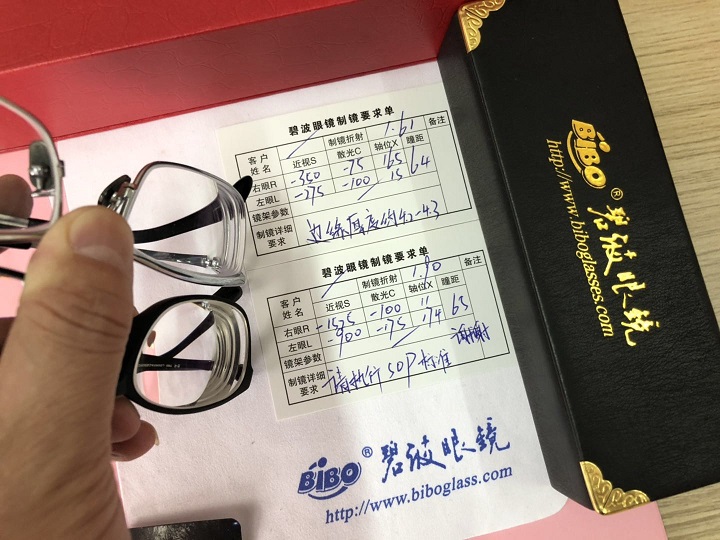 碧波眼镜制镜要求单
客户姓名 制镜折射 1.61 备注
近视S 散光C 轴位X 瞳距
右眼R -350 -75 165 64
左眼L -275 -100 15
镜架参数
制镜详细要求 边缘厚度约4.2-4.3
碧波眼镜制镜要求单
客户姓名 制镜折射 1.90 备注
近视S 散光C 轴位X 瞳距
右眼R -1575 -100 11 63
左眼L -900 -175 174
镜架参数 谢谢
制镜详细要求 请执行SOP标准
BiBO® 碧波眼镜
http://www.biboglass.com
BiBO® 碧波眼镜
http://www.biboglasses.com